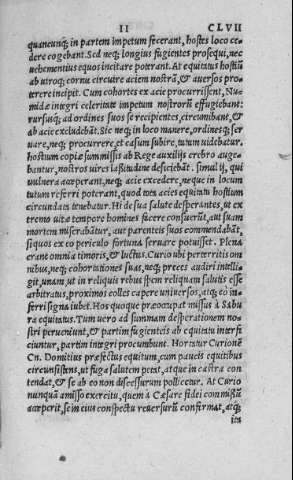 II CLVII
quancunq; in partem impetum fecerant, hostes loco ce-
dere cogebant. Sed neq; longius fugientes prosequi, nec
uehementius equos incitare poterant. At equitatus hostiũ
ab utroq; cornu circuire aciem nostrã, & auersos pro-
terere incipit. Cum cohortes ex acie procurrissent, Nu-
midæ integri celeritate impetum nostrorũ effugiebant:
rursusq; ad ordines suos se recipientes, circumibant, &
ab acie excludebãt. Sic neq; in loco manere, ordinesq; ser
uare, neq; procurrere, et casum subire, tutum uidebatur.
hostium copiæ summissis ab Rege auxiliis crebro auge-
bantur, nostros uires lassitudine deficiebãt. simul ij, qui
uulnera acceperant, neq; acie excedere, neque in locum
tutum referri poterant, quod tota acies equitatu hostium
circundata tenebatur. Hi de sua salute desperantes, ut ex
tremo uitæ tempore homines facere consueuerũt, aut suam
mortem miserabãtur, aut parenteis suos commendabãt,
siquos ex eo periculo fortuna seruare potuisset. Plena
erant omnia timoris, & luctus. Curio ubi perterritis om
nibus, neq; cohortationes suas, neq; preces audiri intelli-
git, unam, ut in miseris rebus spem reliquam salutis esse
arbitratus, proximos colles capere uniuersos, atq; eò in-
ferri signa iubet. Hos quoque præoccupat missus à Sabu
ra equitatus. Tum uero ad summam desperationem no-
stri perueniunt, & partim fugienteis ab equitatu interfi
ciuntur, partim integri procumbunt. Hortatur Curionẽ
Cn. Domitius præfectus equitum, cum paucis equitibus
circunsistens, ut fuga salutem petat, atque in castra con
tendat, & se ab eo non discessurum pollicetur. At Curio
nunquã amisso exercitu, quem à Cæsare fidei commissũ
acceperit, se in eius conspectũ reuersurũ confirmat, atq;
ita